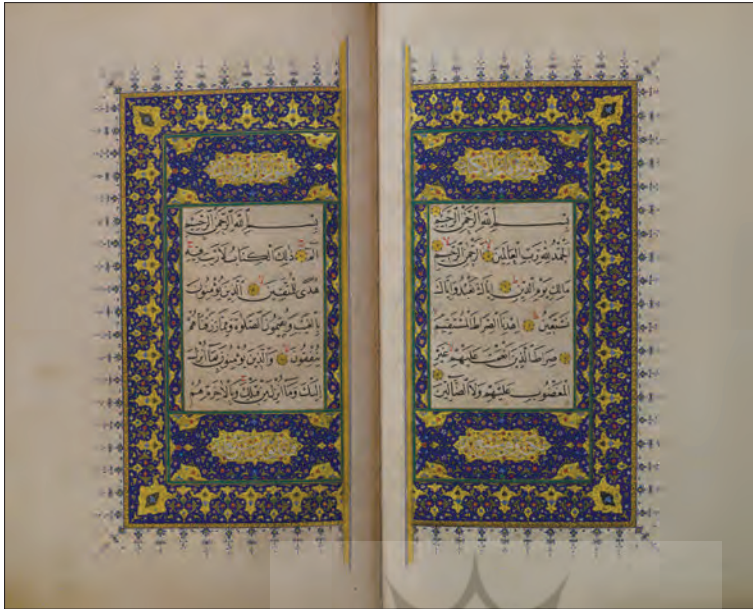 بِسْمِ اللَّهِ الرَّحْمَٰنِ الرَّحِيمِ
الْحَمْدُ لِلَّهِ رَبِّ الْعَالَمِينَ الرَّحْمَٰنِ الرَّحِيمِ
مَالِكِ يَوْمِ الدِّينِ إِيَّاكَ نَعْبُدُ وَإِيَّاكَ
نَسْتَعِينُ اهْدِنَا الصِّرَاطَ الْمُسْتَقِيمَ
صِرَاطَ الَّذِينَ أَنْعَمْتَ عَلَيْهِمْ غَيْرِ
الْمَغْضُوبِ عَلَيْهِمْ وَلَا الضَّالِّينَ
بِسْمِ اللَّهِ الرَّحْمَٰنِ الرَّحِيمِ
الم ذَٰلِكَ الْكِتَابُ لَا رَيْبَ فِيهِ
هُدًى لِلْمُتَّقِينَ الَّذِينَ يُؤْمِنُونَ
بِالْغَيْبِ وَيُقِيمُونَ الصَّلَوٰةَ وَمِمَّا رَزَقْنَاهُمْ
يُنْفِقُونَ وَالَّذِينَ يُؤْمِنُونَ بِمَا أُنْزِلَ
إِلَيْكَ وَمَا أُنْزِلَ مِنْ قَبْلِكَ وَبِالْآخِرَةِ هُمْ